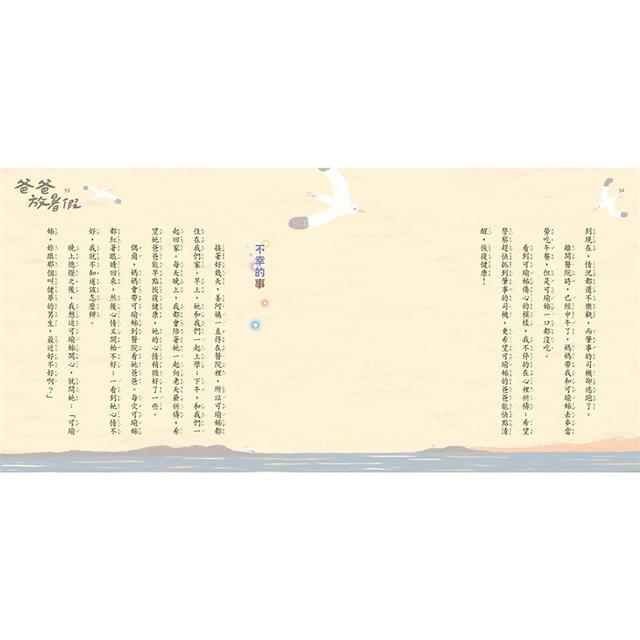 52
到現在，情況都還不樂觀，而肇事的司機卻逃跑了。
離開醫院時，已經中午了，媽媽帶我和可瑜姊去麥當
勞吃午餐，但是可瑜姊一口都沒吃。
看到可瑜姊傷心的模樣，我不停的在心裡祈禱：希望
警察趕快抓到肇事的司機，更希望可瑜姊的爸爸能快點清
醒，恢復健康！
不幸的事
接著好幾天，姜阿姨一直待在醫院裡，所以可瑜姊都
住在我們家。早上，她和我們一起上學；下午，和我們一
起回家。每天晚上，我都會陪著她一起向老天爺祈禱，希
望她爸爸能早點恢復健康，她的心情稍微好了一些。
偶爾，媽媽會帶可瑜姊到醫院看她爸爸。每次可瑜姊
都紅著眼睛回來，然後心情又開始不好；一看到她心情不
好，我就不知道該怎麼辦。
晚上熄燈之後，我想逗可瑜姊開心，就問她：「可瑜
姊，妳跟那個叫健華的男生，最近好不好啊？」
爸爸
放暑假
53